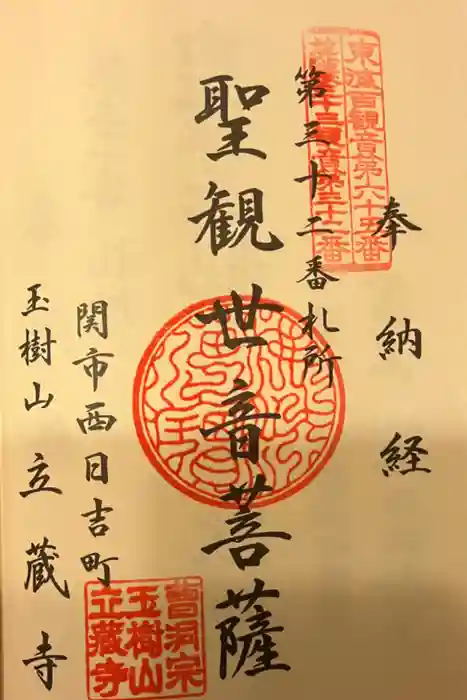 奉納経
東濃百観音第六十五番
美濃三十三観音第三十二番
第三十二番札所
聖観世音菩薩
関市西日吉町
玉樹山 立蔵寺
曹洞宗
玉樹山
立蔵寺